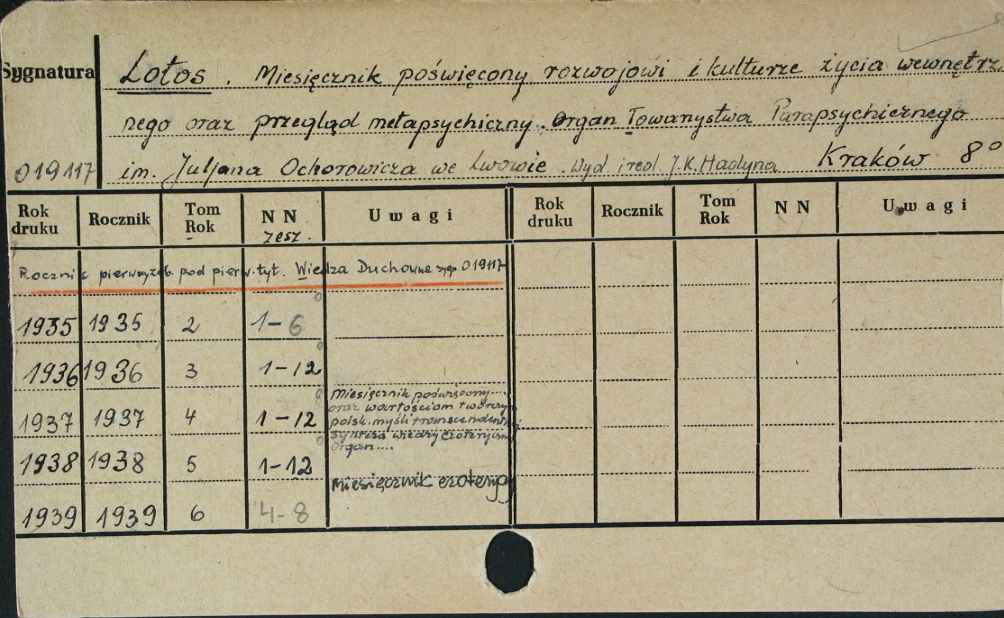 Sygnatura Lotos. Miesięcznik poświęcony rozwojowi i kulturze życia wewnętrz
nego oraz przegląd metapsychiczny. Organ Towarzystwa Parapsychicznego
019117 im. Juljana Ochorowicza we Lwowie. Wyd i red. J.K. Hadyna Kraków 8°
Rok druku Rocznik Tom Rok NN zesz. Uwagi Rok druku Rocznik Tom Rok NN Uwagi
Rocznik pierwszy pod pierw. tyt. Wiedza Duchowa 019117
1935 1935 2 1-6
1936 1936 3 1-12
1937 1937 4 1-12 Miesięcznik poświęcony...
oraz wartościom twórczym
polsk. myśli transcendent.
synteza wiedzy ezoterycznej
Organ....
1938 1938 5 1-12
Miesięcznik ezoteryc
1939 1939 6 4-8